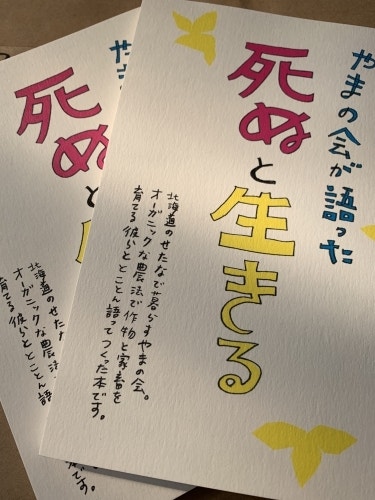 やまの会が語った
死ぬと生きる
北海道のせたなで暮らすやまの会。
オーガニックな農法で作物と家畜を
育てる彼らととことん語ってつくった本です。
やま
死ぬと
北海道のせたな
オーガニックな農法
育てる彼らととことん語
本です。